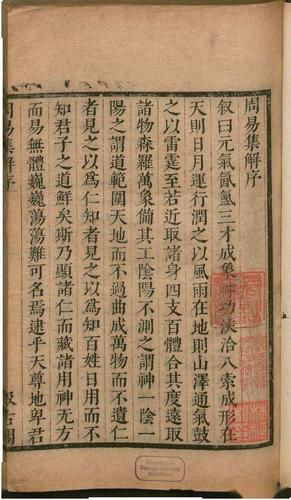 周易集解序
叙曰元氣氤氳三才成象神功浹洽八索成形在
天則日月運行潤之以風雨在地則山澤通氣鼓
之以雷霆至若近取諸身四支百體合其度遠取
諸物森羅萬象備其工陰陽不測之謂神一陰一
陽之謂道範圍天地而不過曲成萬物而不遺仁
者見之以爲仁知者見之以爲知百姓日用而不
知君子之道鮮矣斯乃顯諸仁而藏諸用神无方
而易無體巍巍蕩蕩難可名焉逮乎天尊地卑君
周易集解序
汲古閣